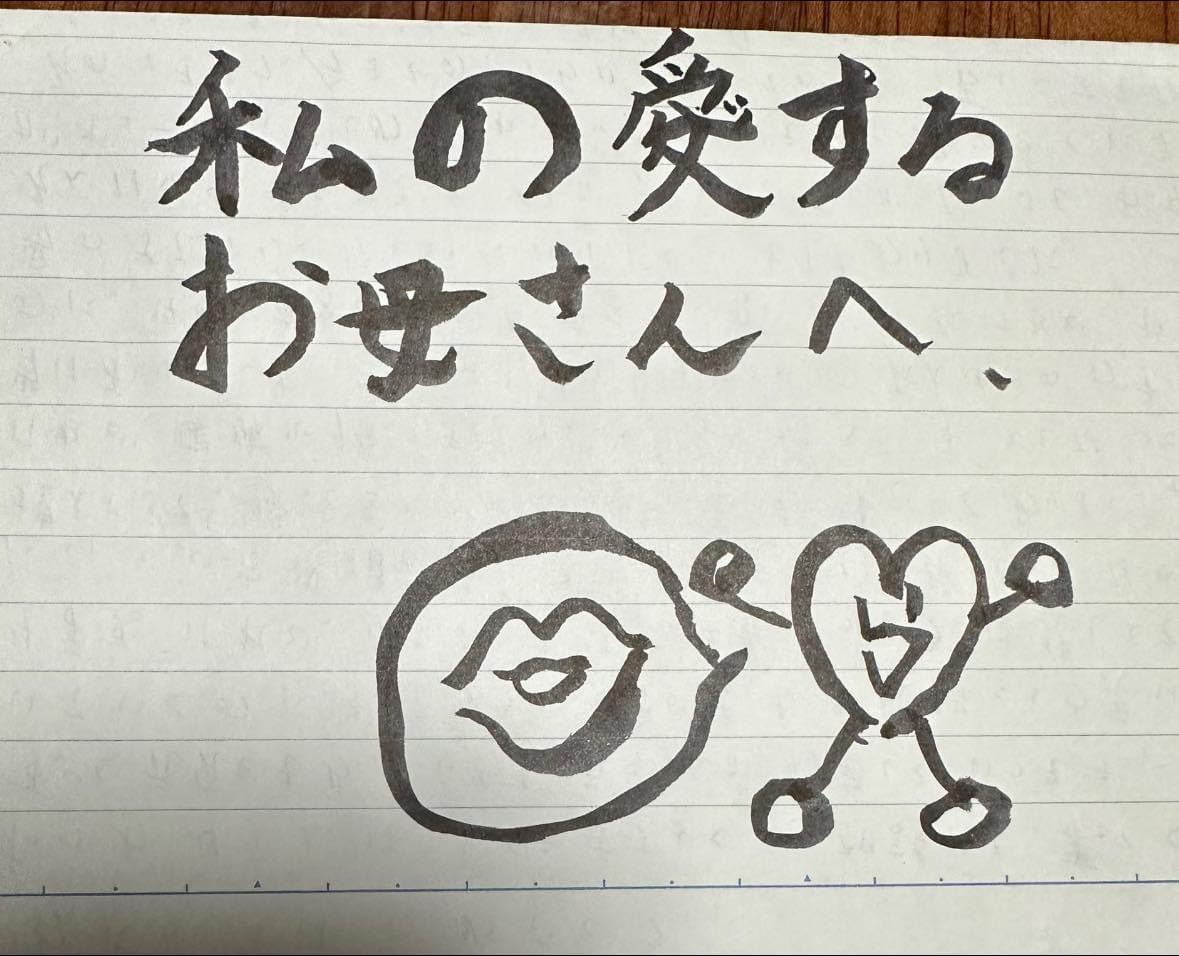 私の愛する
お母さんへ、